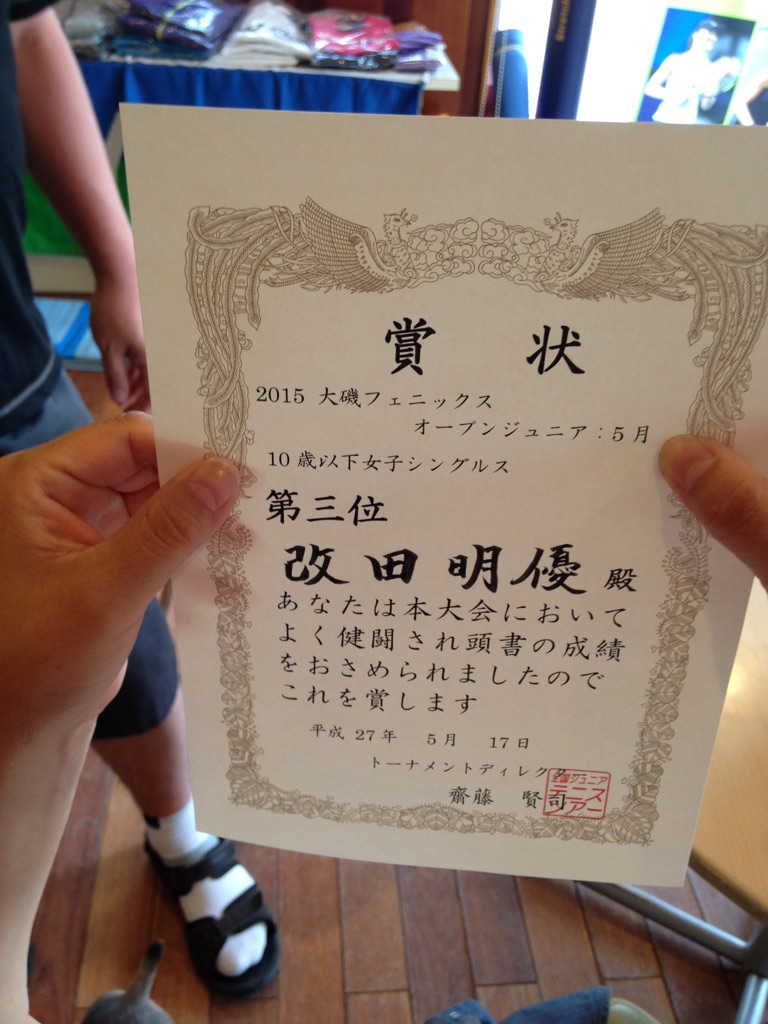 賞 状
2015 大磯フェニックス
オープンジュニア：5月
10歳以下女子シングルス
第三位
改田明優 殿
あなたは本大会において
よく健闘され頭書の成績
をおさめられましたので
これを賞します
平成 27年 5月 17日
トーナメントディレクター
齋藤 賢司
全国ジュニア
テニス
ツアー